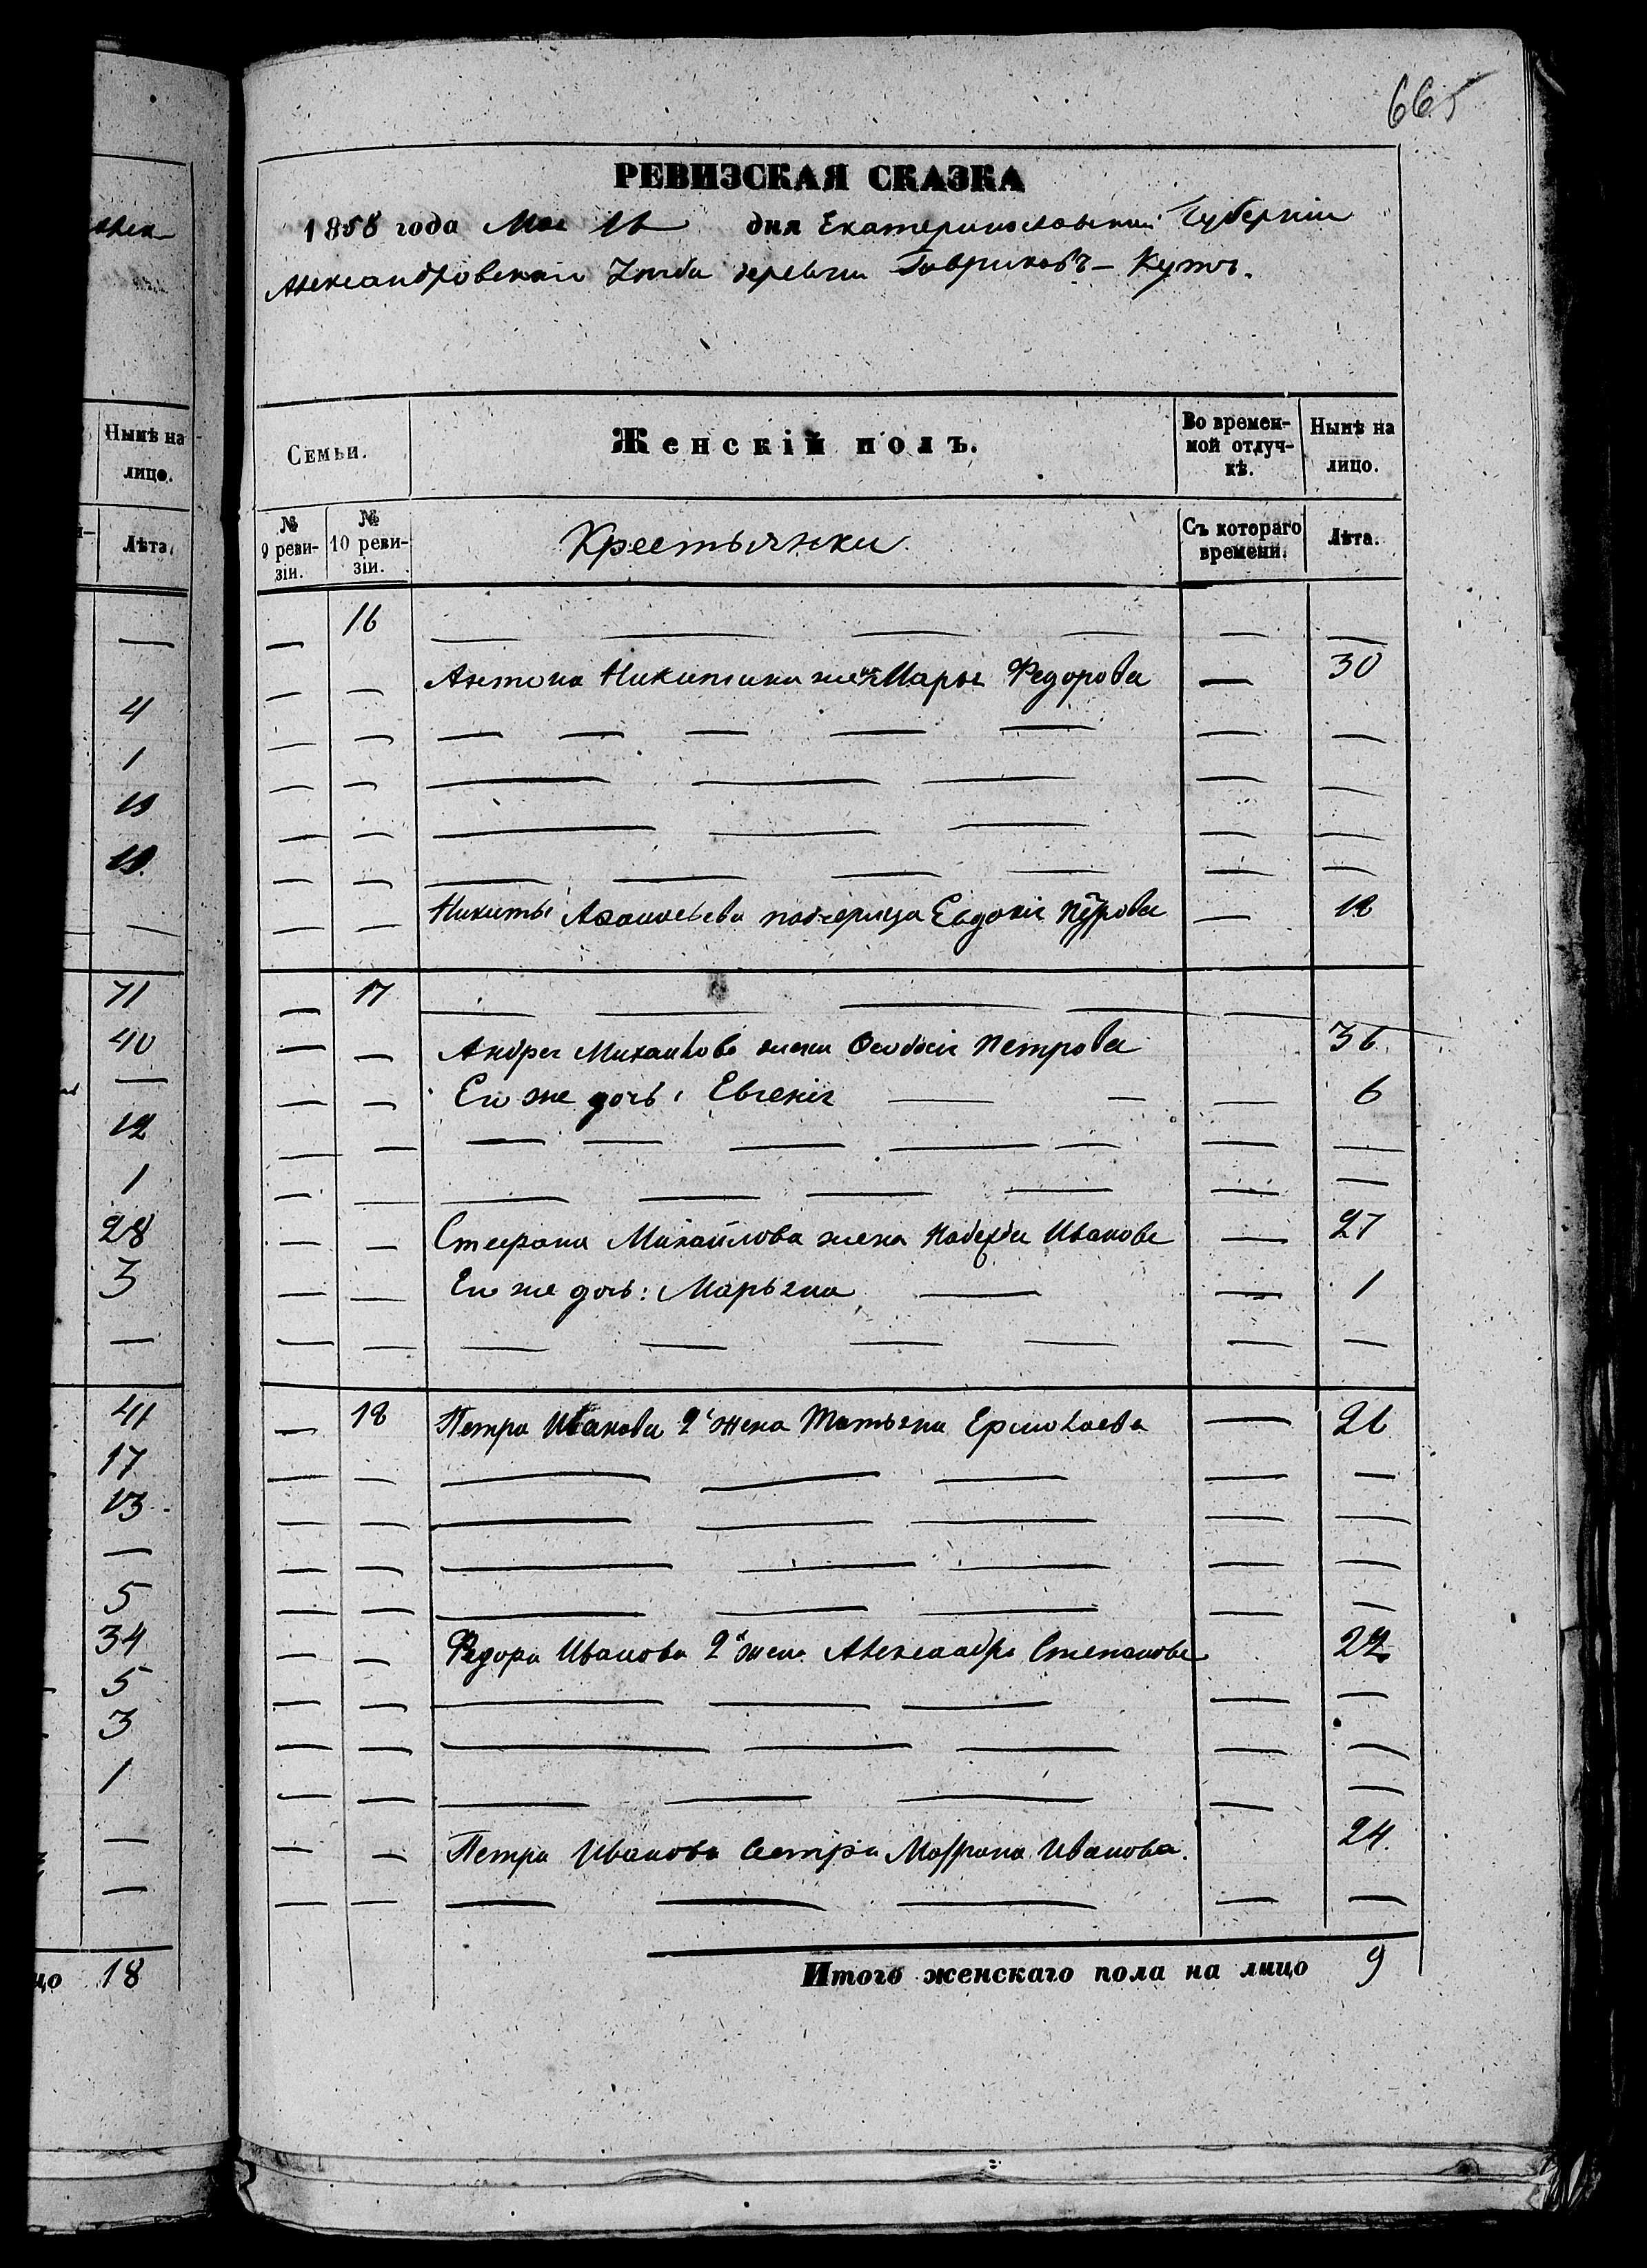 665
РЕВИЗСКАЯ СКАЗКА
1858 года Мая 16 дня Екатеринославской Губернии
Александровскаго Уезда деревни Гавриковъ-Кутъ.
Семьи.
Женскій полъ.
Во времен-
ной отлуч-
кѣ.
Нынѣ на
лицо.
№
9 реви-
зіи.
№
10 реви-
зіи.
Крестьянки
Съ котораго
времени.
Лѣта.
— 16 — — — — — —
— — Антона Никитина жена Марья Федорова — 30
Никиты Афанасьева падчерица Евдокія Петрова — 12
— 17
— — Андрея Михайлова жена Феодосія Петрова 36
— — Его же дочь: Евгенія — — — 6
— — Стефана Михайлова жена Надежда Иванова — 27
— — Его же дочь: Марьяна — — 1
— 18 Петра Иванова 2я жена Татьяна Ермолаева — 26
— — Федора Иванова 2я жена Александра Степанова 22
— — Петра Иванова Сестра Мафрона Иванова. 24.
Итого женскаго пола на лицо 9
Нынѣ на
лицо.
Лѣта.
—
4
1
—
71
40
—
12
1
28
3
—
41
17
13
—
5
34
5
3
1
—
—
цо 18